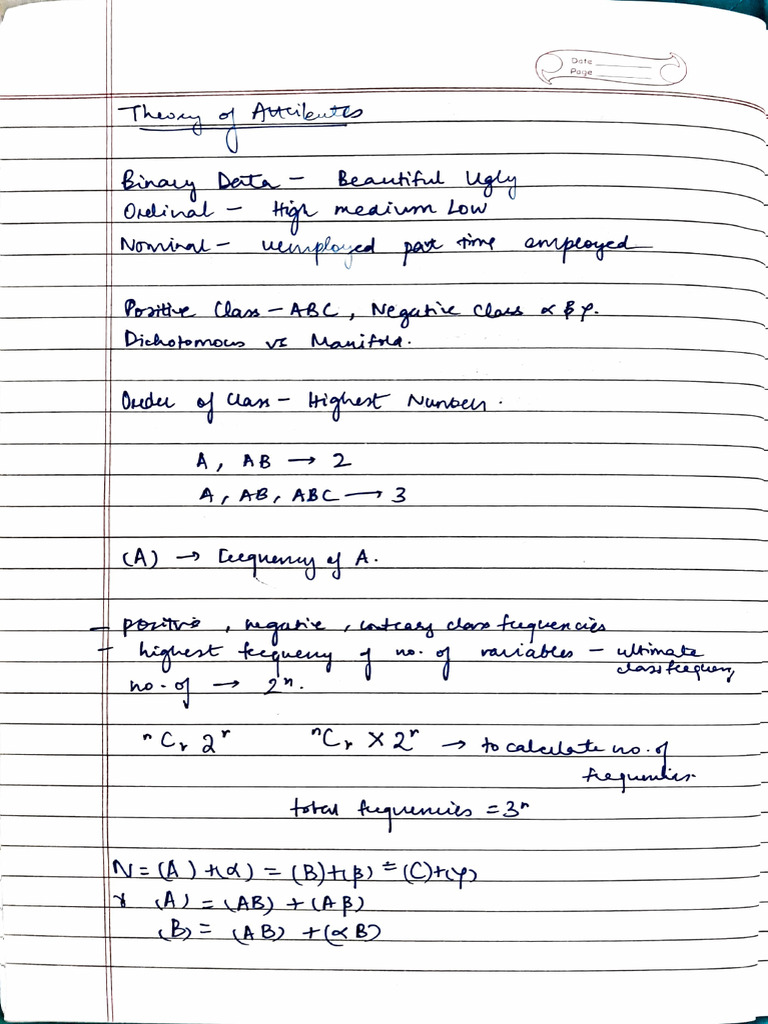 Date
Page
Theory of Attributes
Binary Data - Beautiful Ugly
Ordinal - High medium Low
Nominal - uemployed part time employed
Positive Class - ABC, Negative class α β γ.
Dichotomous vs Manifold.
Order of Class - Highest Number.
A, AB → 2
A, AB, ABC → 3
(A) → frequency of A.
- positive, negative, contrary class frequencies
- highest frequency of no. of variables - ultimate class frequency
no. of → 2ⁿ.
ⁿCᵣ 2ʳ ⁿCᵣ × 2ʳ → to calculate no. of frequencies.
total frequencies = 3ⁿ
N = (A) + (α) = (B) + (β) = (C) + (γ)
(A) = (AB) + (Aβ)
(B) = (AB) + (αB)